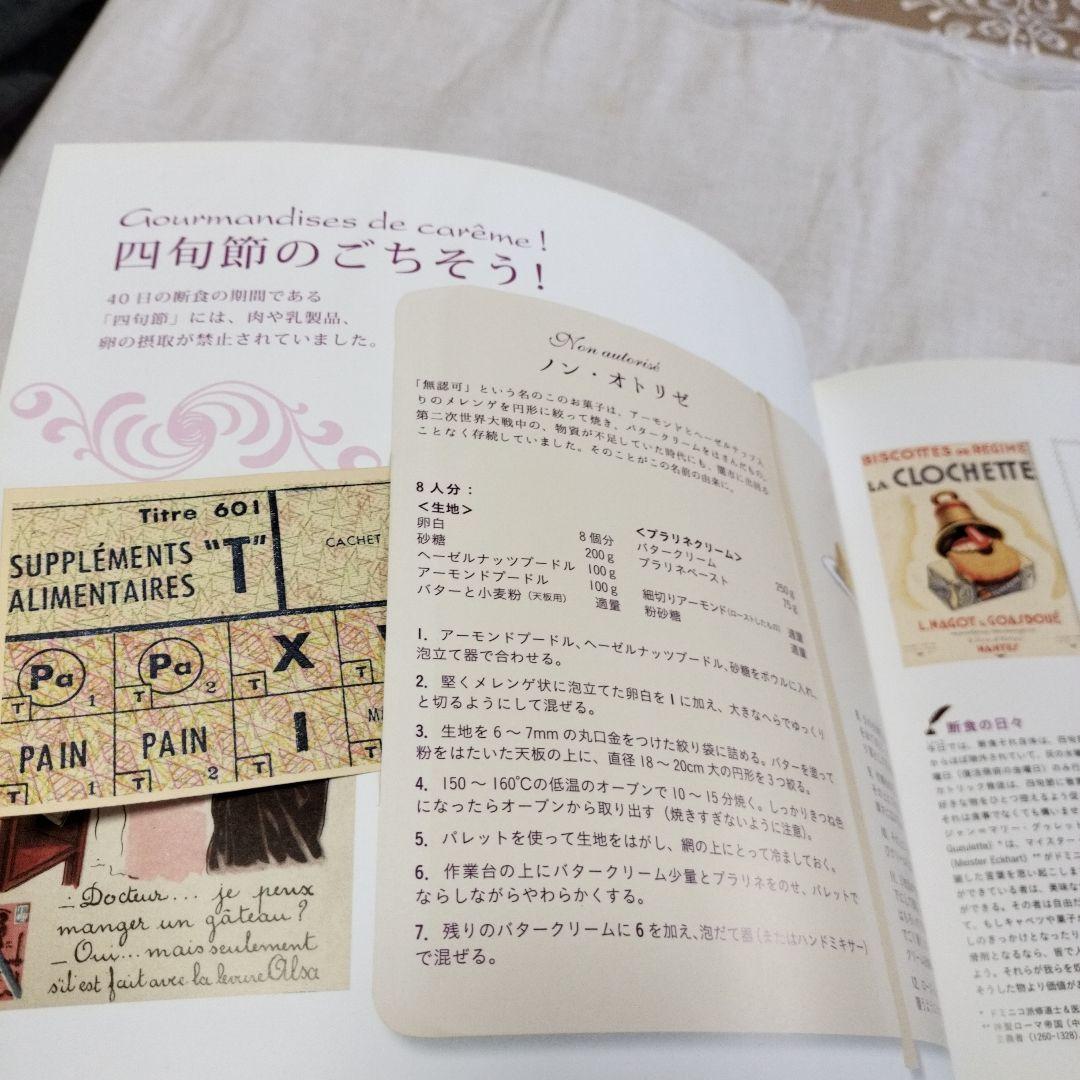 Gourmandises de carême!
四旬節のごちそう!
40日の断食の期間である
「四旬節」には、肉や乳製品、
卵の摂取が禁止されていました。
Non autorisé
ノン・オトリゼ
「無認可」という名のこのお菓子は、アーモンドとヘーゼルナッツ入
りのメレンゲを円形に絞って焼き、バタークリームをはさんだもの。
第二次世界大戦中の、物資が不足していた時代にも、闇市に出回る
ことなく存続していました。そのことがこの名前の由来に。
8人分：
<生地>
卵白 8個分
砂糖 200g
ヘーゼルナッツプードル 100g
アーモンドプードル 100g
バターと小麦粉（天板用） 適量
<プラリネクリーム>
バタークリーム 250g
プラリネペースト 75g
細切りアーモンド(ローストしたもの) 適量
粉砂糖 適量
1. アーモンドプードル、ヘーゼルナッツプードル、砂糖をボウルに入れ、
泡立て器で合わせる。
2. 堅くメレンゲ状に泡立てた卵白を1に加え、大きなへらでゆっくり
と切るようにして混ぜる。
3. 生地を6〜7mmの丸口金をつけた絞り袋に詰める。バターを塗って
粉をはたいた天板の上に、直径18〜20cm大の円形を3つ絞る。
4. 150〜160℃の低温のオーブンで10〜15分焼く。しっかりきつね色
になったらオーブンから取り出す（焼きすぎないように注意）。
5. パレットを使って生地をはがし、網の上にとって冷ましておく。
6. 作業台の上にバタークリーム少量とプラリネをのせ、パレットで
ならしながらやわらかくする。
7. 残りのバタークリームに6を加え、泡だて器（またはハンドミキサー）
で混ぜる。
Titre 601
SUPPLÉMENTS
ALIMENTAIRES
"T"
CACHET
Pa 1
T
Pa 2
T
X
T
T
PAIN 1
T
PAIN 2
T
I
T
_ Docteur... je peux
manger un gâteau?
_ Oui... mais seulement
s'il est fait avec la levure Alsa
BISCOTTES DE RÉGIME
LA CLOCHETTE
L. MAGOT & GOASDOUÉ
NANTES
断食の日々